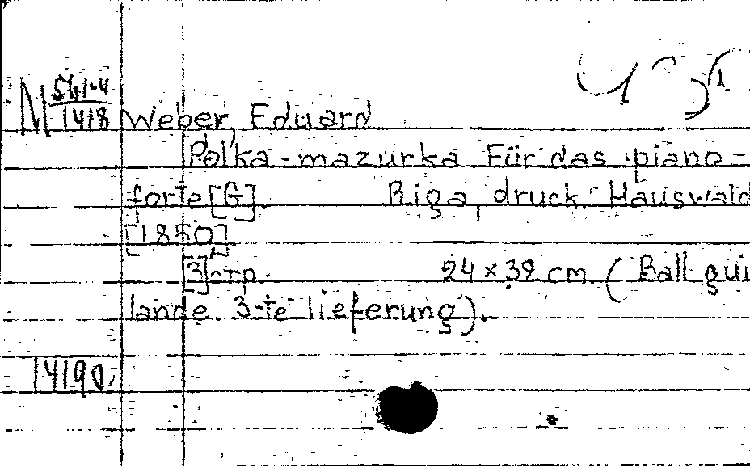 M 541-4
1418
Weber, Eduard
Polka-mazurka Für das piano-
forte [G]. Riga, druck Hauswald
[1850]
[3] стр. 24 × 39 cm (Ball gui
lande. 3-te lieferung).
14190